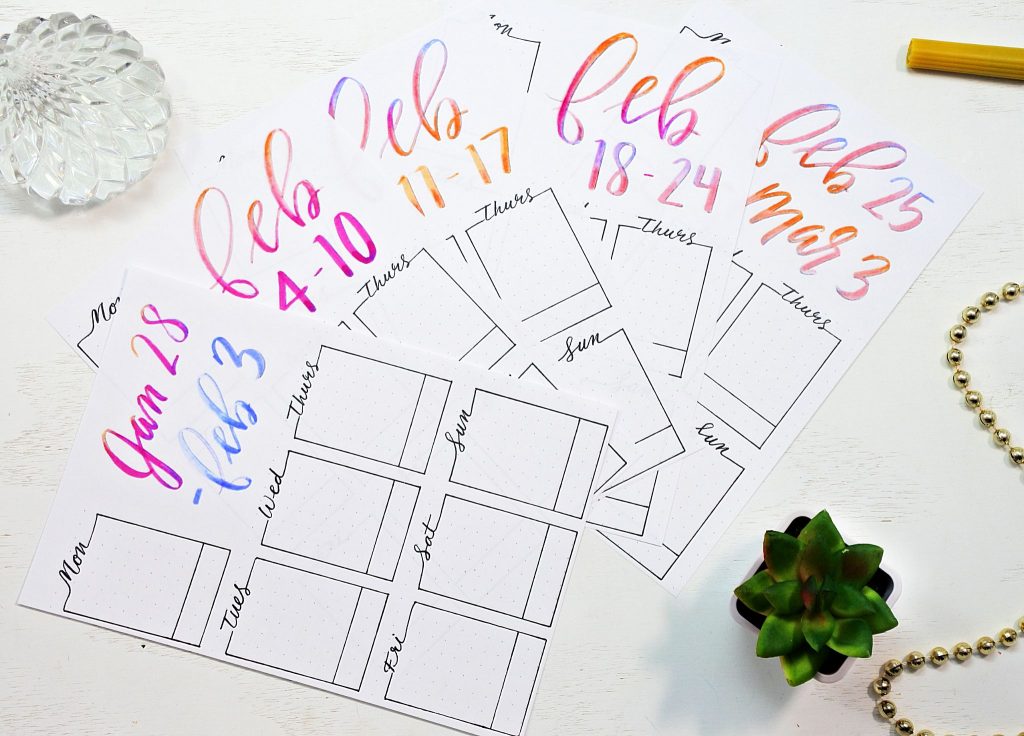 Jan 28
- feb 3
Mon
Tues
Wed
Thurs
Fri
Sat
Sun
feb
4-10
Mo
Thurs
feb
11-17
Thurs
Sun
feb
18-24
Thurs
feb 25
mar 3
Thurs
Sun